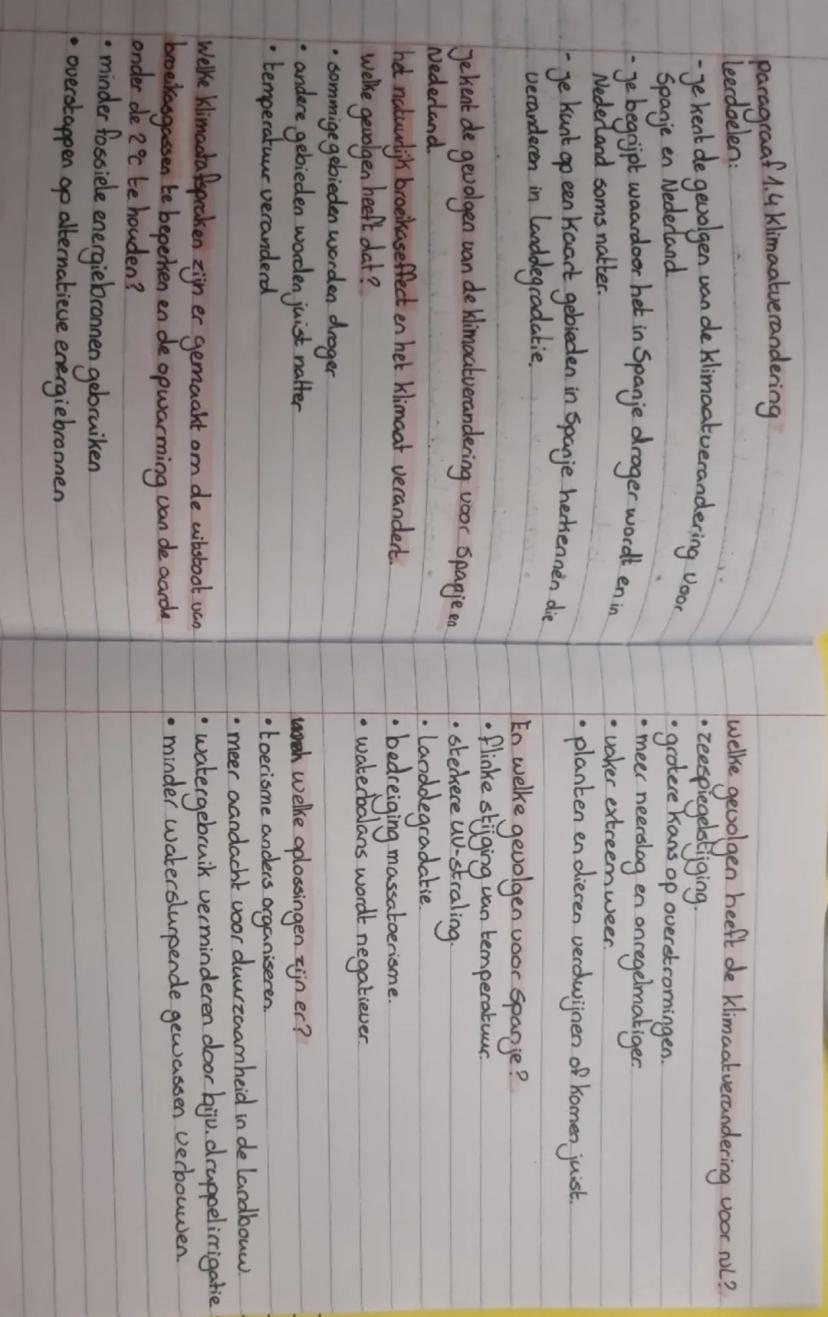 paragraaf 1.4 klimaatverandering
leerdoelen:
- je kent de gevolgen van de klimaatverandering voor
Spanje en Nederland.
- je begrijpt waardoor het in Spanje droger wordt en in
Nederland soms natter.
- je kunt op een kaart gebieden in Spanje herkennen die
veranderen in landdegradatie.
Je kent de gevolgen van de klimaatverandering voor Spanje en
Nederland.
het natuurlijk broeikaseffect en het klimaat verandert.
welke gevolgen heeft dat?
• sommige gebieden worden droger
• andere gebieden worden juist natter
• temperatuur veranderd
Welke klimaatafspraken zijn er gemaakt om de uitstoot van
broeikasgassen te beperken en de opwarming van de aarde
onder de 2°C te houden?
• minder fossiele energiebronnen gebruiken
• overstappen op alternatieve energiebronnen
welke gevolgen heeft de klimaatverandering voor NL?
• zeespiegelstijging.
• grotere kans op overstromingen.
• meer neerslag en onregelmatiger.
• vaker extreem weer.
• planten en dieren verdwijnen of komen juist.
En welke gevolgen voor Spanje?
• flinke stijging van temperatuur.
• sterkere UV-straling.
• Landdegradatie.
• bedreiging massatoerisme.
• waterbalans wordt negatiever.
welke oplossingen zijn er?
• toerisme anders organiseren.
• meer aandacht voor duurzaamheid in de landbouw.
• watergebruik verminderen door bijv. druppelirrigatie
• minder waterslurpende gewassen verbouwen.